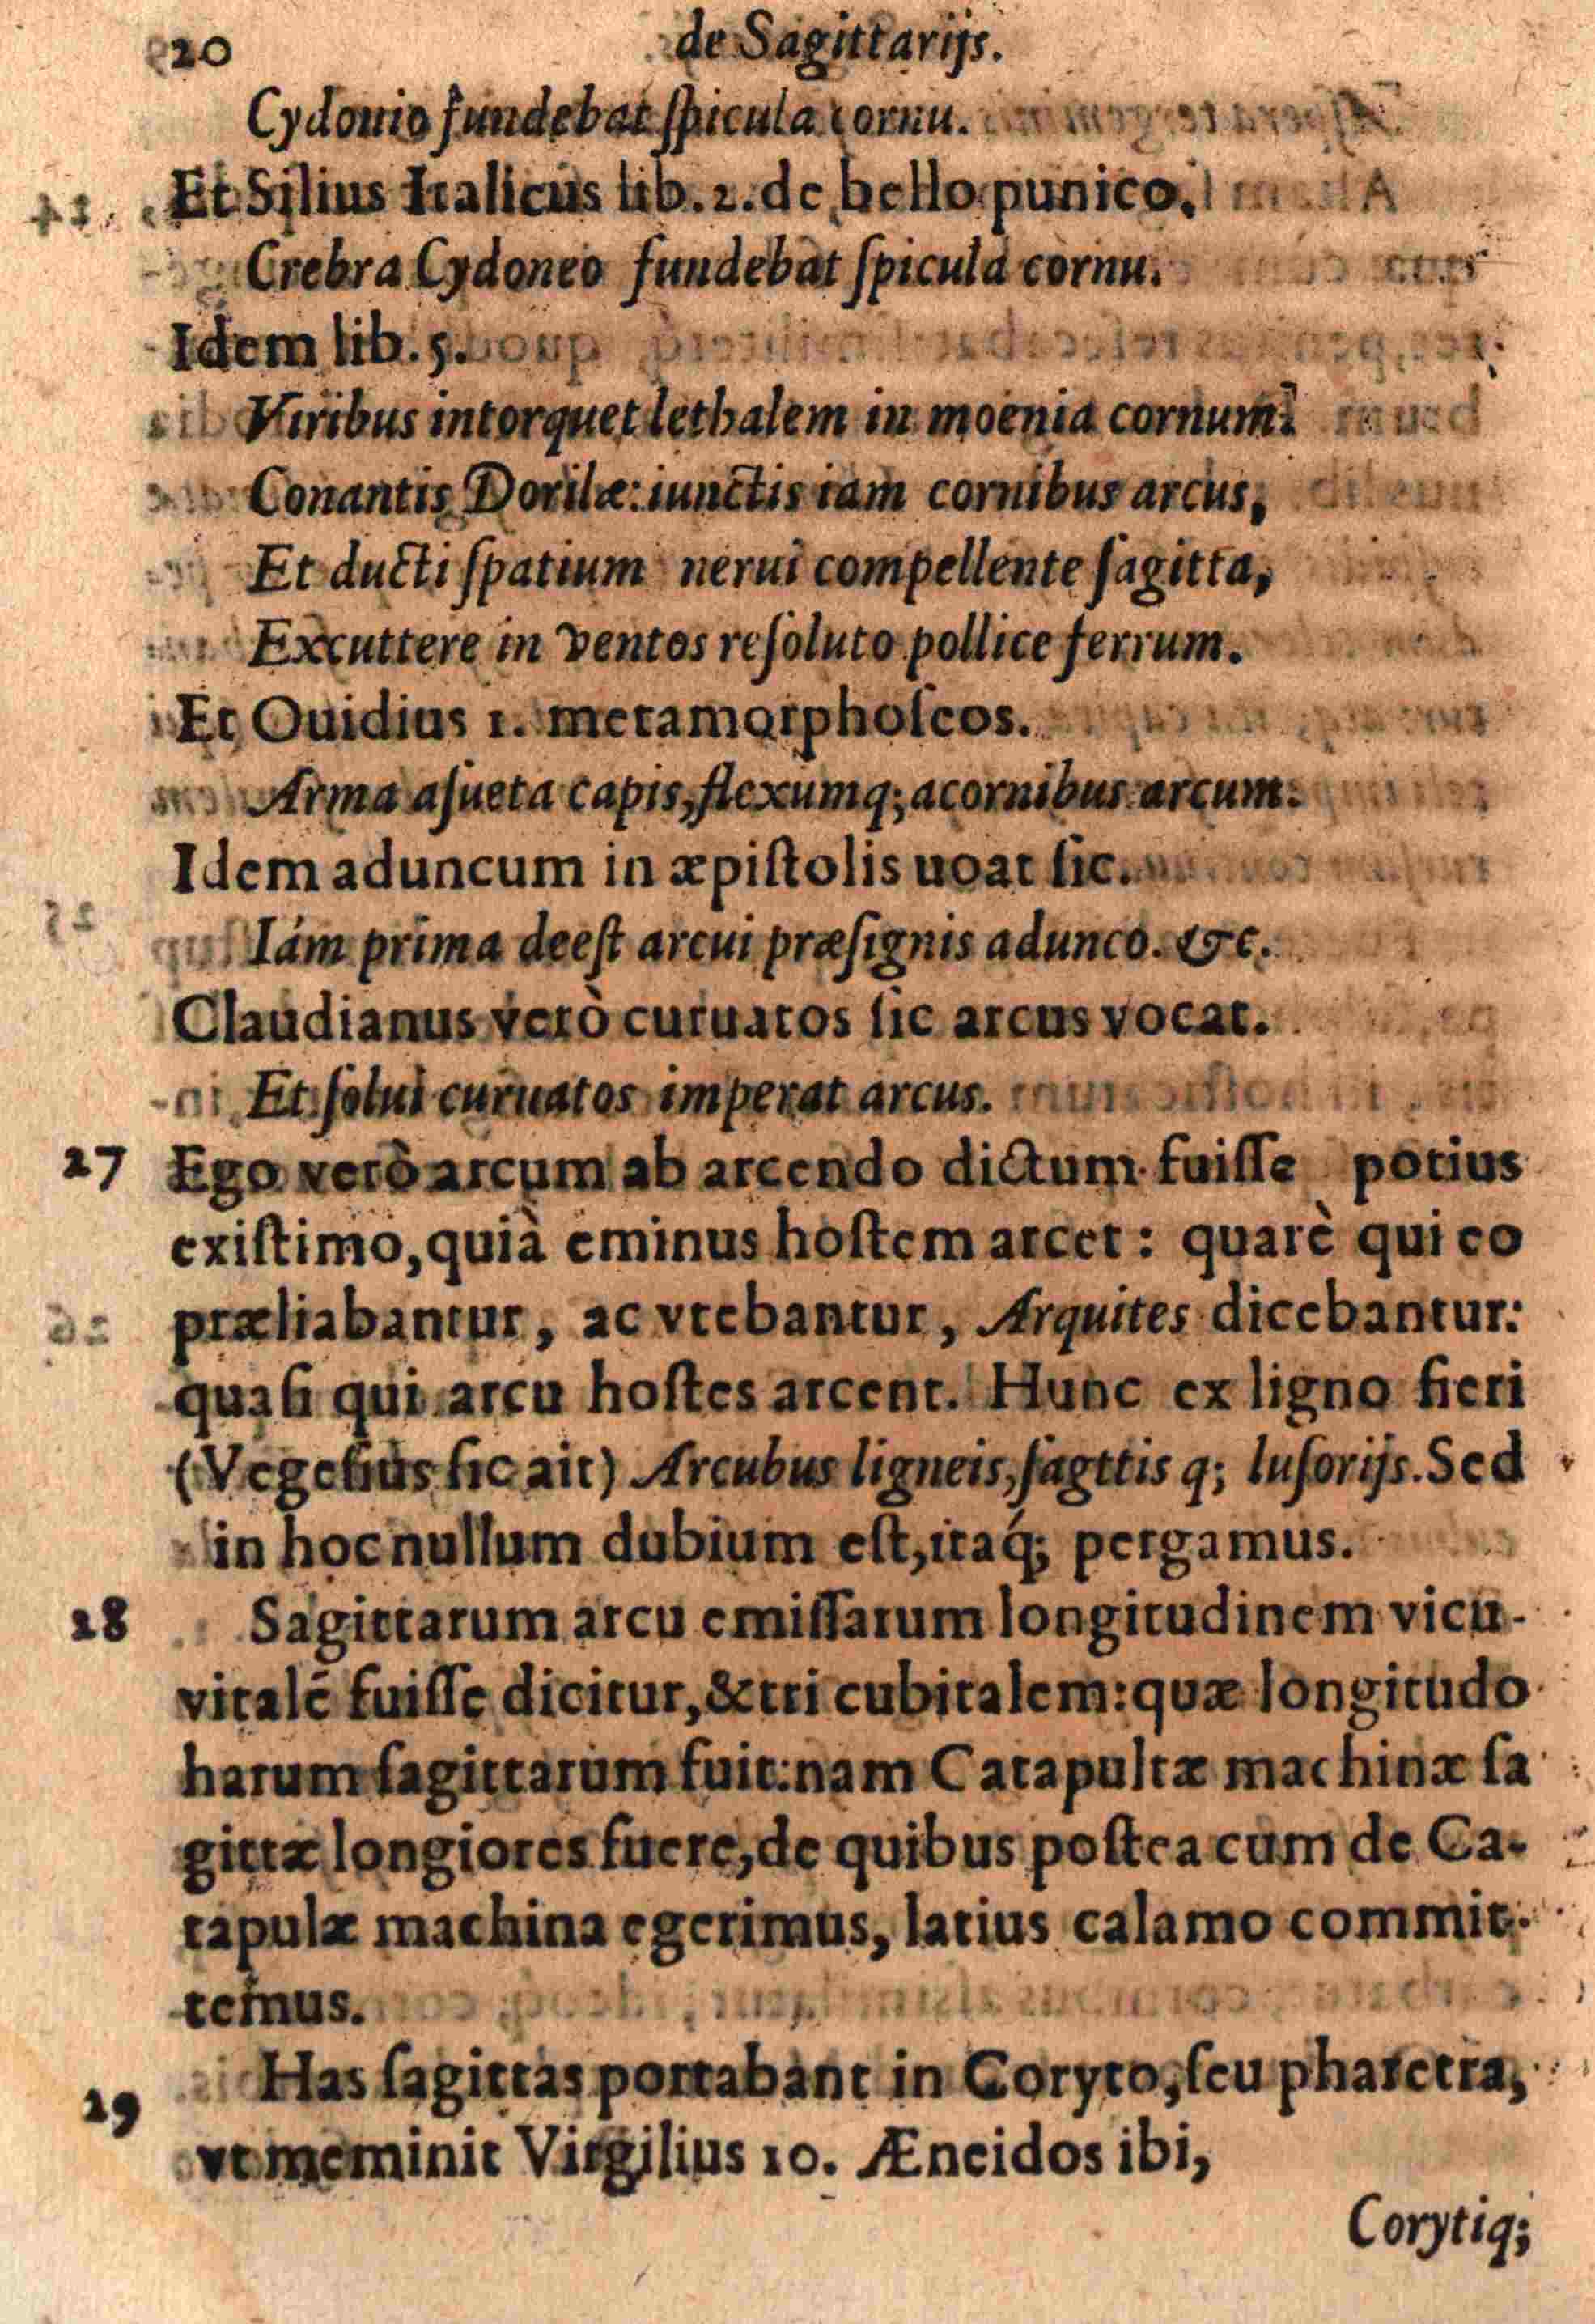 20 de Sagittarijs.
Cydonio fundebat ſpicula cornu.
Et Silius Italicus lib. 2. de bello punico,
Crebra Cydoneo fundebat ſpicula cornu.
Idem lib. 5.
Viribus intorquet lethalem in moenia cornum:
Conantis Dorilæ: iunctis iam cornibus arcus,
Et ducti ſpatium nerui compellente ſagitta,
Excuttere in ventos reſoluto pollice ferrum.
Et Ouidius 1. metamorphoſeos.
Arma aſueta capis, flexumq; acornibus arcum.
Idem aduncum in æpiſtolis uoat ſic.
Iám prima deeſt arcui præſignis adunco. &c.
Claudianus verò curuatos ſic arcus vocat.
Et ſolui curuatos imperat arcus.
27 Ego verò arcum ab arcendo dictum fuiſſe potius
exiſtimo, quià eminus hoſtem arcet: quarè qui eo
præliabantur, ac vtebantur, Arquites dicebantur:
quaſi qui arcu hoſtes arcent. Hunc ex ligno fieri
(Vegeſius ſic ait) Arcubus ligneis, ſagttis q; luſorijs. Sed
in hoc nullum dubium eſt, itaq́; pergamus.
28 Sagittarum arcu emiſſarum longitudinem vicu-
vitalē fuiſſe dicitur, & tri cubitalem: quæ longitudo
harum ſagittarum fuit: nam Catapultæ machinæ ſa
gittæ longiores fuere, de quibus poſtea cum de Ca-
tapulæ machina egerimus, latius calamo commit-
temus.
29 Has ſagittas portabant in Coryto, ſeu pharetra,
vt meminit Virgilius 10. Æneidos ibi,
Corytiq;